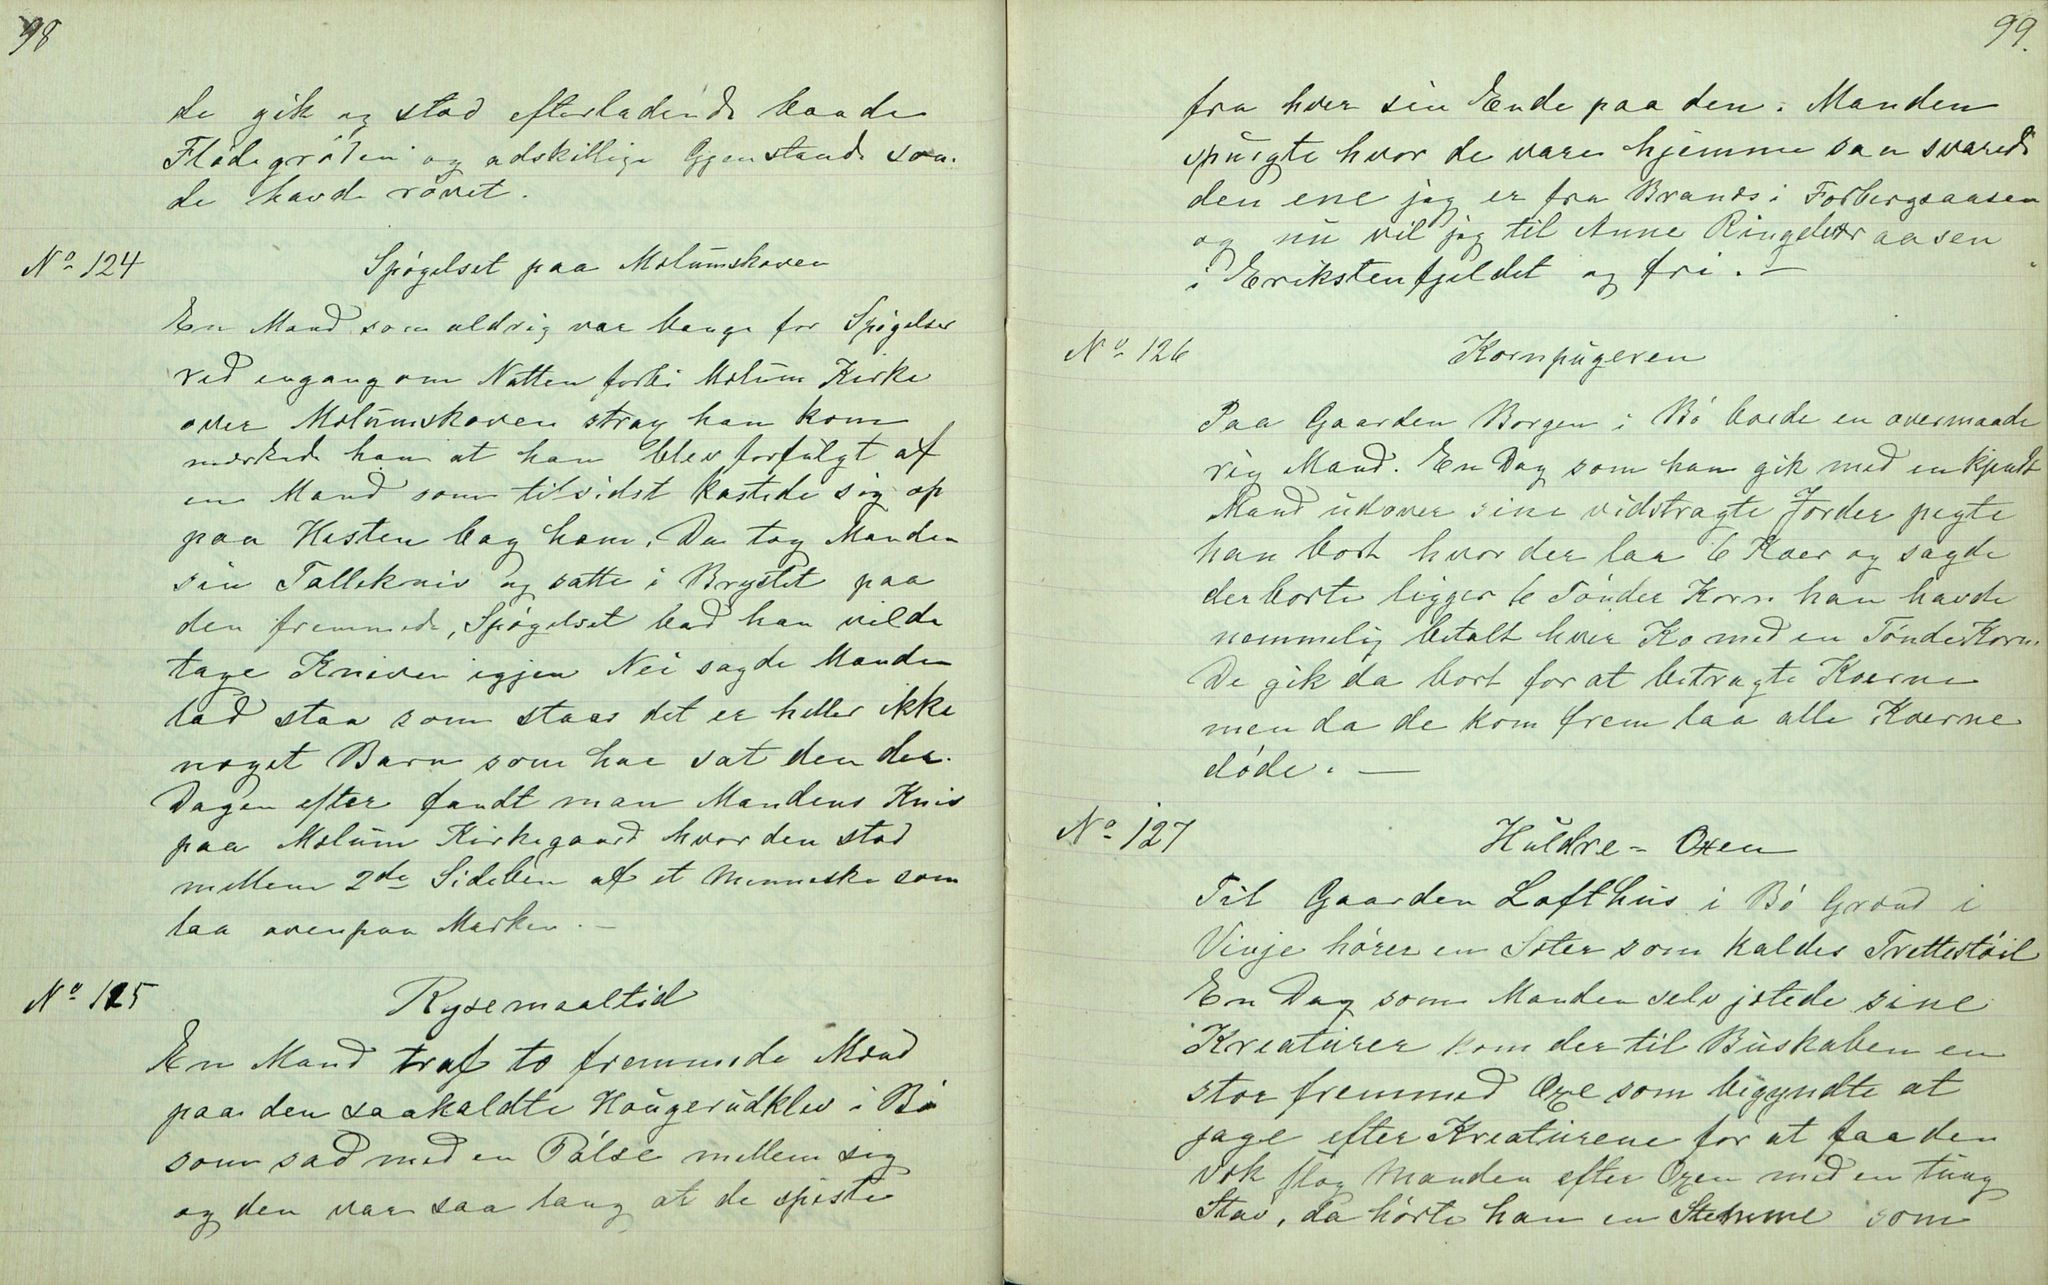 98
de gik og stod efterladende baade
Flødegrøden og adskillige Gjenstande som
de havde røvet.
No 124 Spøgelset paa Molumskoven
En Mand som aldrig var bange for Spøgelser
red engang om Natten forbi Molum Kirke
over Molumskoven strax han kom
mærkede han at han blev forfulgt af
en Mand som tilsidst kastede sig op
paa Hesten bag ham. Da tog Manden
sin Tallekniv og satte i Brystet paa
den fremmede, Spøgelset bad han vilde
tage Kniven igjen Nei sagde Manden
lad staa som staar det er heller ikke
noget Barn som har sat den der.
Dagen efter fandt man Mandens Kniv
paa Molum Kirkegaard hvor den stod
mellem 2de Sideben af et Menneske som
laa ovenpaa Marken. —
No 125 Rysemaaltid
En Mand traf to fremmede Mænd
paa den saakaldte Haugerudklev i Bø
som sad med en Pølse mellem sig
og den var saa lang at de spiste
99.
fra hver sin Ende paa den. Manden
spurgte hvor de vare hjemme saa svarede
den ene jeg er fra Brands i Forbergsaasen
og nu vil jeg til Anne Ringelværaasen
i Erikstenfjeldet og fri. —
No 126 Kornpugeren
Paa Gaarden Borgen i Bø boede en overmaade
rig Mand. En Dag som han gik med en kjendt
Mand udover sine vidstragte Jorder pegte
han bort hvor der laa 6 Køer og sagde
der borte ligger 6 Tønder Korn han havde
nemmelig betalt hver Ko med en Tønde Korn.
De gik da bort for at betragte Køerne
men da de kom frem laa alle Køerne
døde. —
No 127 Huldre-Oxen
Til Gaarden Lofthus i Bø Grænd i
Vinje hører en Sæter som kaldes Trettestøil
En Dag som Manden selv jætede sine
Kreaturer kom der til Buskaben en
stor fremmed Oxe som begyndte at
jage efter Kreaturene for at faa den
væk slog Manden efter Oxen med en tung
Stav, da hørte han en Stemme som